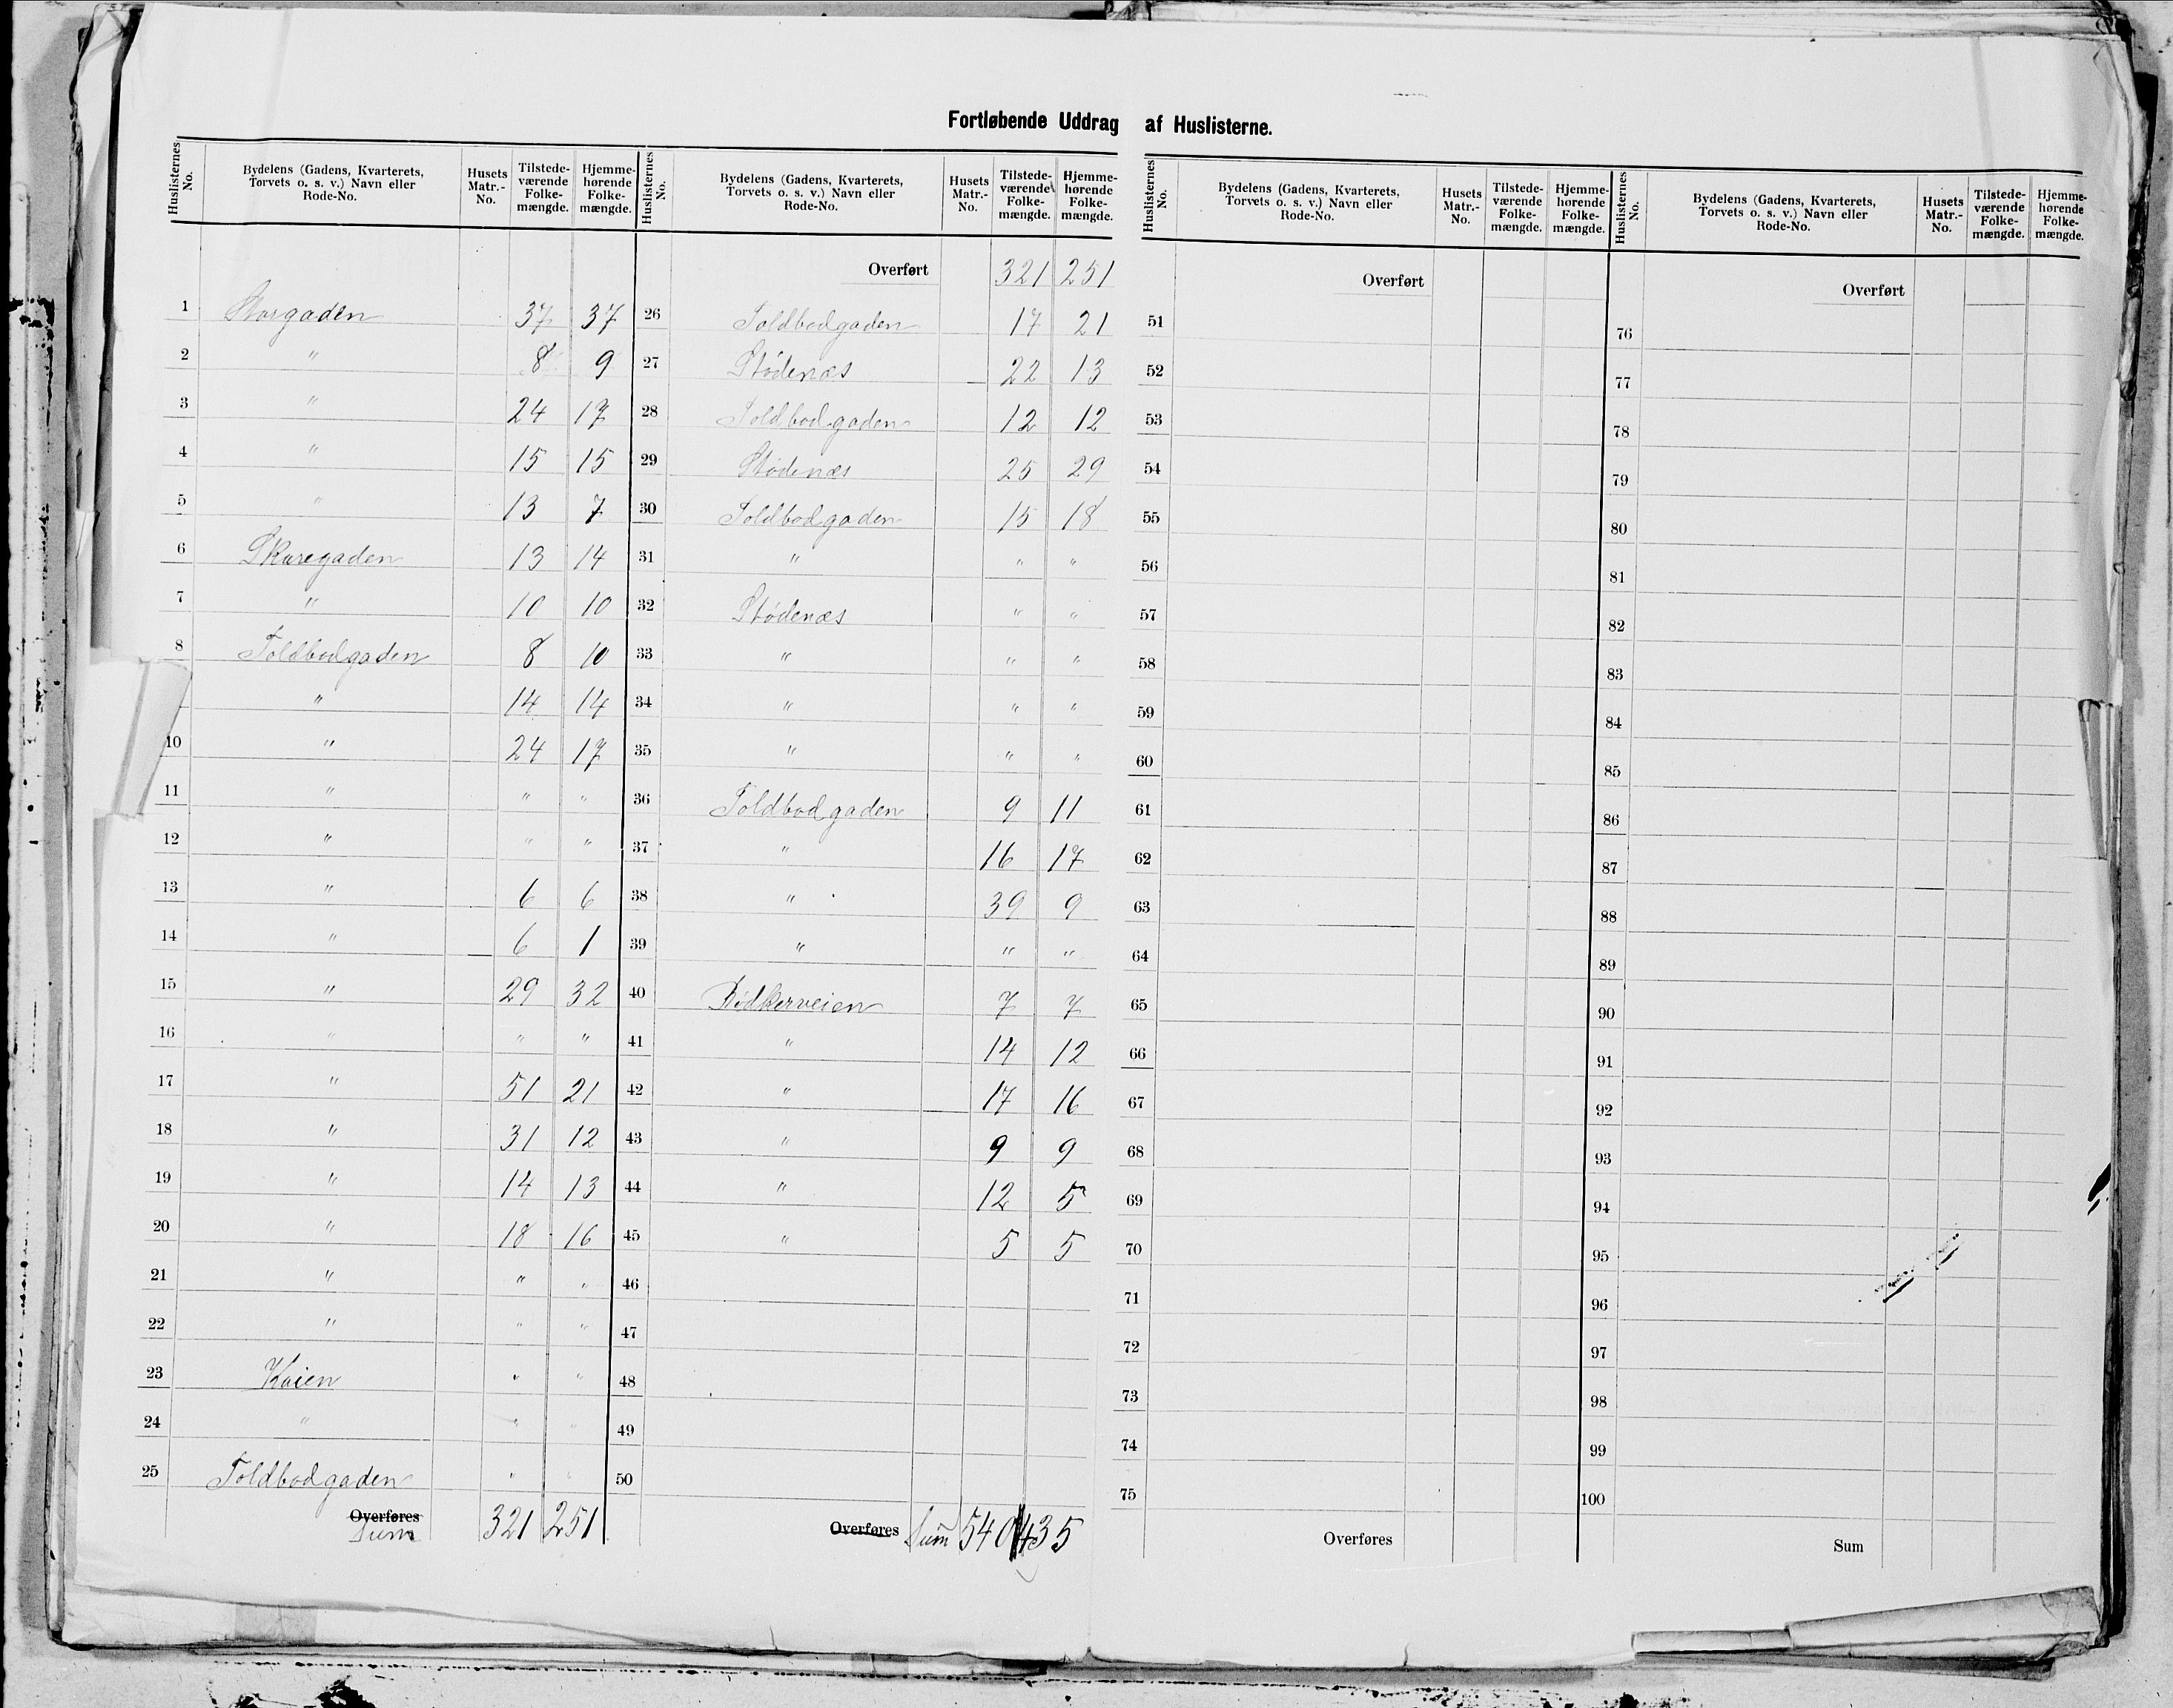 Fortløbende Uddrag af Huslisterne.
Huslisternes No. | Bydelens (Gadens, Kvarterets, Torvets o. s. v.) Navn eller Rode-No. | Husets Matr.-No. | Tilstedeværende Folkemængde. | Hjemmehørende Folkemængde.
1 Storgaden 37 37
2 " 8 9
3 " 24 17
4 " 15 15
5 " 13 7
6 Skaregaden 13 14
7 " 10 10
8 Toldbodgaden 8 10
" 14 14
10 " 24 17
11 " " "
12 " " "
13 " 6 6
14 " 6 1
15 " 29 32
16 " " "
17 " 51 21
18 " 31 12
19 " 14 13
20 " 18 16
21 " " "
22 " " "
23 Kaien " "
24 " " "
25 Toldbodgaden " "
Overføres
Sum 321 251
Huslisternes No. | Bydelens (Gadens, Kvarterets, Torvets o. s. v.) Navn eller Rode-No. | Husets Matr.-No. | Tilstedeværende Folkemængde. | Hjemmehørende Folkemængde.
Overført 321 251
26 Toldbodgaden 17 21
27 Stødenæs 22 13
28 Toldbodgaden 12 12
29 Stødenæs 25 29
30 Toldbodgaden 15 18
31 " " "
32 Stødenæs " "
33 " " "
34 " " "
35 " " "
36 Toldbodgaden 9 11
37 " 16 17
38 " 39 9
39 " " "
40 Bødkerveien 7 7
41 " 14 12
42 " 17 16
43 " 9 9
44 " 12 5
45 " 5 5
46
47
48
49
50
Overføres Sum 540 435
Huslisternes No. | Bydelens (Gadens, Kvarterets, Torvets o. s. v.) Navn eller Rode-No. | Husets Matr.-No. | Tilstedeværende Folkemængde. | Hjemmehørende Folkemængde.
Overført
51
52
53
54
55
56
57
58
59
60
61
62
63
64
65
66
67
68
69
70
71
72
73
74
75
Overføres
Huslisternes No. | Bydelens (Gadens, Kvarterets, Torvets o. s. v.) Navn eller Rode-No. | Husets Matr.-No. | Tilstedeværende Folkemængde. | Hjemmehørende Folkemængde.
Overført
76
77
78
79
80
81
82
83
84
85
86
87
88
89
90
91
92
93
94
95
96
97
98
99
100
Sum